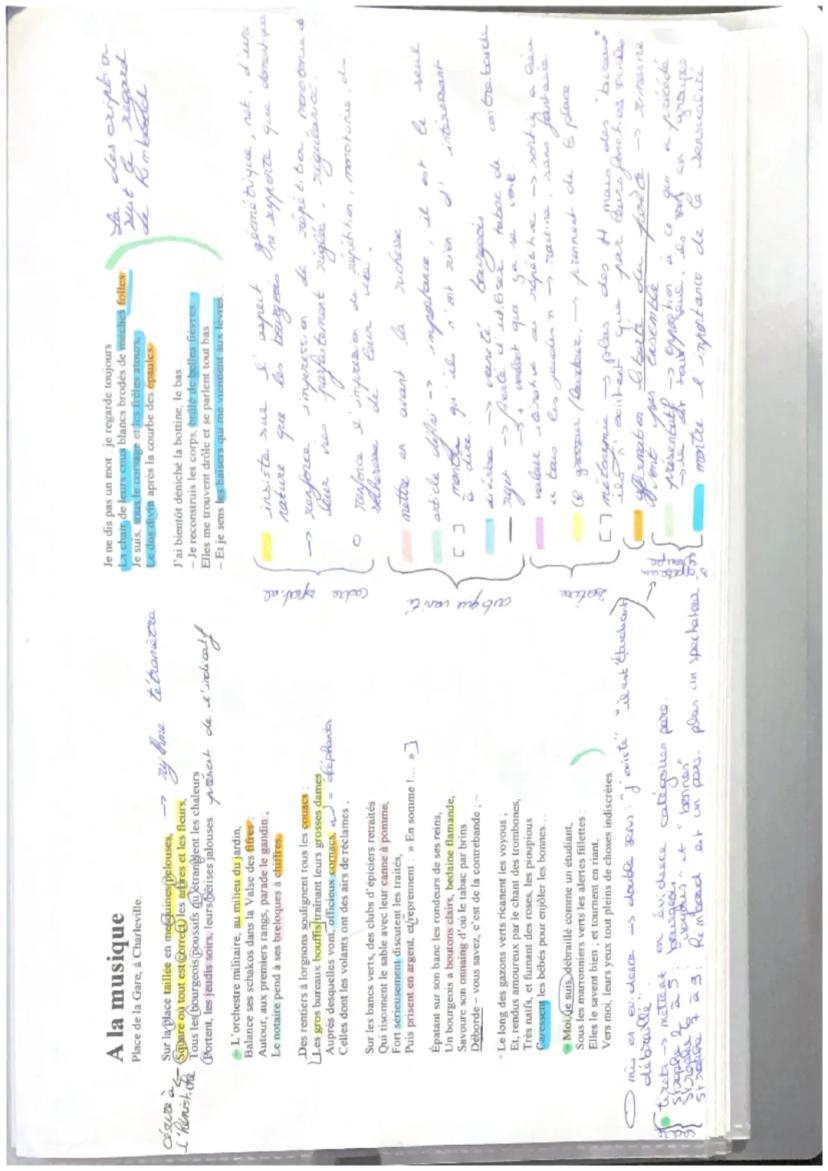 A la musique
Place de la Gare, à Charleville.
césure à l'hémistiche
Sur la place taillée en mesquines pelouses, → rythme tétramètre
Square où tout est correct, les arbres et les fleurs,
Tous les bourgeois poussifs qu'étranglent les chaleurs
Portent, les jeudis soirs, leurs bêtises jalouses présent de l'indicatif
– L'orchestre militaire, au milieu du jardin,
Balance ses schakos dans la Valse des fifres :
Autour, aux premiers rangs, parade le gandin ;
Le notaire pend à ses breloques à chiffres.
Des rentiers à lorgnons soulignent tous les couacs :
Les gros bureaux bouffis traînant leurs grosses dames
Auprès desquelles vont, officieux cornacs, = éléphants
Celles dont les volants ont des airs de réclames ;
Sur les bancs verts, des clubs d'épiciers retraités
Qui tisonnent le sable avec leur canne à pomme,
Fort sérieusement discutent les traités,
Puis prisent en argent, et reprennent : » En somme !... » ]
Épatant sur son banc les rondeurs de ses reins,
Un bourgeois à boutons clairs, bedaine flamande,
Savoure son onnaing d'où le tabac par brins
Déborde – vous savez, c'est de la contrebande ; –
Le long des gazons verts ricanent les voyous ;
Et, rendus amoureux par le chant des trombones,
Très naïfs, et fumant des roses, les pioupious
Caressent les bébés pour enjôler les bonnes...
– Moi, je suis, débraillé comme un étudiant,
Sous les marronniers verts les alertes fillettes :
Elles le savent bien ; et tournent en riant,
Vers moi, leurs yeux tout pleins de choses indiscrètes.
mis en évidence → double sens : "j'existe" "il est étudiant"
débraillé.
tirets → mettent en évidence catégories pers.
strophe 2 à 5 : bourgeois
"voyous" et "bonnes"
strophe 7 à 9 : Rimbaud et un pers. plus un spectateur
Je ne dis pas un mot : je regarde toujours
La chair de leurs cous blancs brodés de mèches folles :
Je suis, sous le corsage et les frêles atours,
Le dos divin après la courbe des épaules.
J'ai bientôt déniché la bottine, le bas...
– Je reconstruis les corps, brûlé de belles fièvres.
Elles me trouvent drôle et se parlent tout bas...
– Et je sens les baisers qui me viennent aux lèvres...
La description
suit le regard
de Rimbaud
cadre spatial
insiste sur l'aspect géométrique, net, d'une
nature que les bourgeois ne supporte que domestique
→ renforce impression de répétition monotonie de
leur vie parfaitement réglée, régularité.
renforce l'impression de répétition, monotonie, de
de leur vie.
critique vanité
mettre en avant la richesse
article défini → importance, il est le seul
[ ] montre qu'ils n'ont rien d'intéressant
à dire.
→ vanité bourgeois
rejet → fierté d'utiliser tabac de contrebande
→ veulent que ça se voit
valeur itérative ou répétitive → sortie a lieu
u tous les jeudis → routine, sans fantaisie
satire
grosseur / lourdeur. → prennent de la place
[ ] métonymie → plus des H mais des "bureaux"
ils n'existent que par leurs fonctions
texte du poète → rimes ne
vont pas ensemble
opposition à ce qui a précédé
montre l'importance de la sensualité